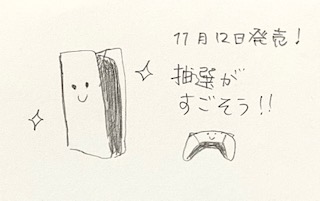 11月12日発売!
抽選が
すごそう!!